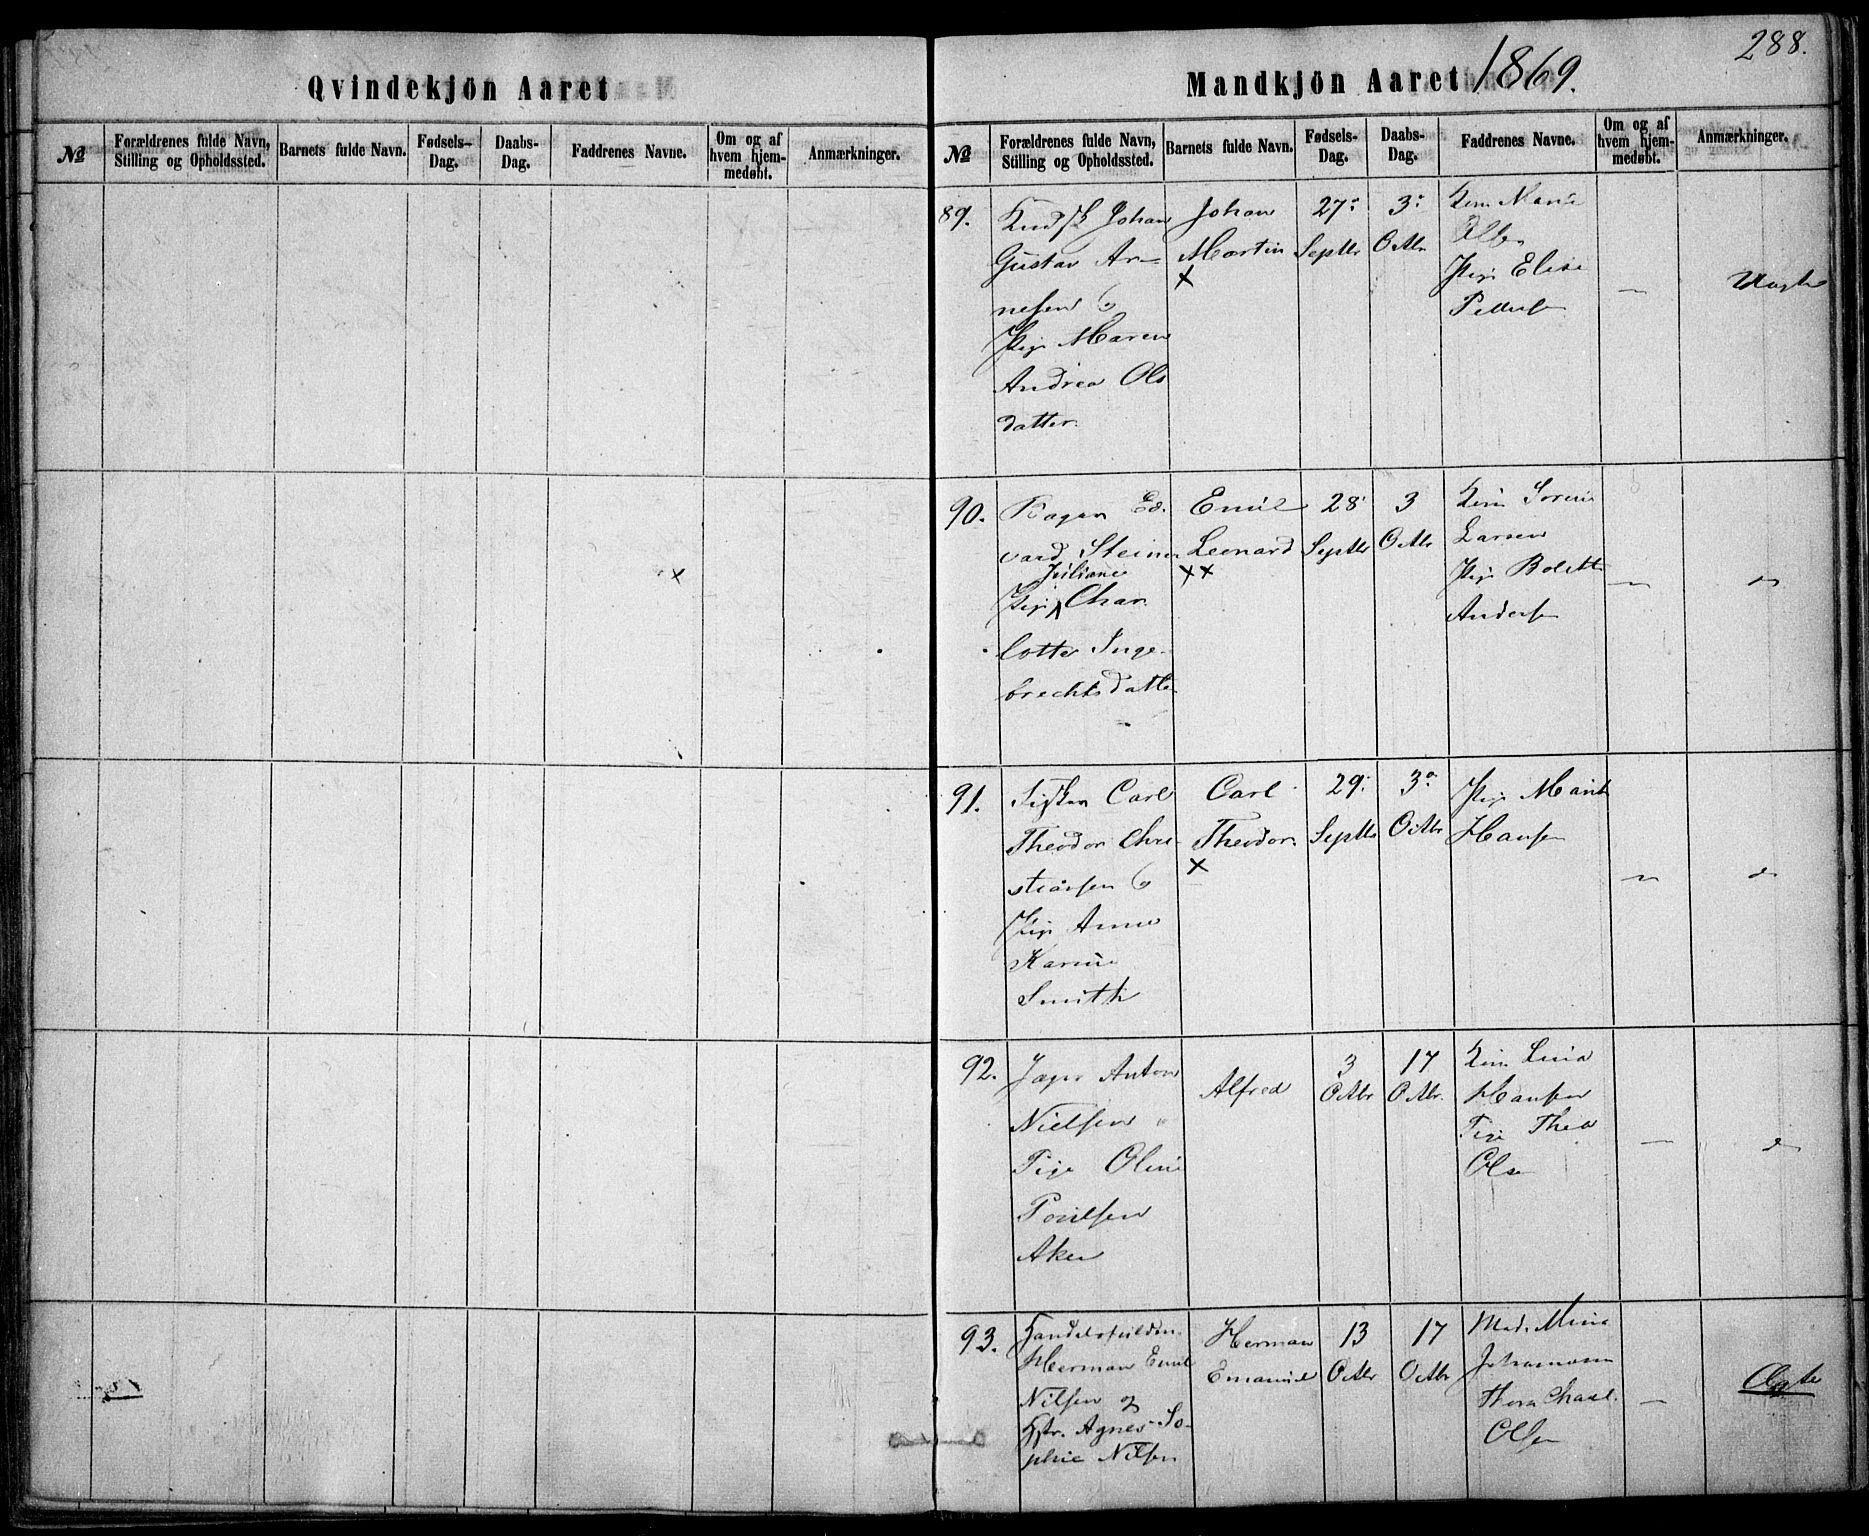 288.
Qvindekjön Aaret
Mandkjön Aaret 1869.
№
Forældrenes fulde Navn,
Stilling og Opholdssted.
Barnets fulde Navn.
Fødsels-
Dag.
Daabs-
Dag.
Faddrenes Navne.
Om og af
hvem hjem-
medøbt.
Anmærkninger.
№
Forældrenes fulde Navn,
Stilling og Opholdssted.
Barnets fulde Navn.
Fødsels-
Dag.
Daabs-
Dag.
Faddrenes Navne.
Om og af
hvem hjem-
medøbt.
Anmærkninger.
89.
Johan
Gustav Ar-
nesen &
Pige Maren
Andrea Ols
datter.
Johan
Martin
x
27
Septbr
3
Octbr
Kone Marie
Olsen
Pige Elise
Peders
—
Uægte
90.
Bager Ed-
vard Steiner
Juliane
Pige Char
lotte Inge-
brechtsdatter
Emil
Leonard
xx
28
Septbr
3
Octbr
Kone
Larsen
Pige Bolette
Andersen
—
d
x
91.
Carl
Theodor Chri-
stiansen &
Pige Anne
Karine
Smith
Carl
Theodor
x
29
Septbr
3
Octbr
Pige Marie
Hansen
—
d
92.
Anton
Nielsen
Pige Oline
Poulsen
Aker
Alfred
3
Octbr
17
Octbr.
Kone Lina
Hansen
Pige Thea
Olsen
—
d
93.
Herman Emil
Nilsen og
Hstr. Agnes So-
phie Nilsen
Herman
Emanuel
13
Octbr
17
Octbr
Mad. Mina
Johannesen
Thora
Olsen
—
Ægte